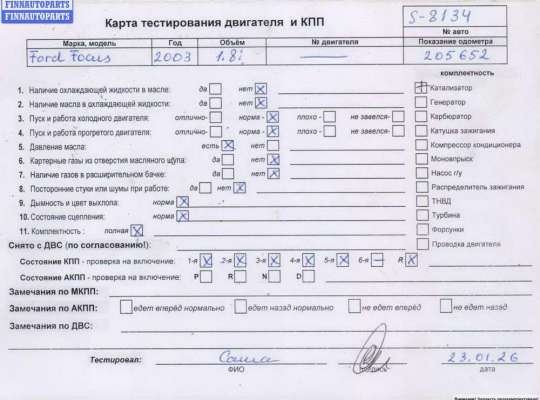 FINNAUTOPARTS
FINNAUTOPARTS
Карта тестирования двигателя и КПП
S-8134
№ авто
Марка, модель Год Объём № двигателя Показание одометра
Ford Focus 2003 1.8i — 205652
комплектность
1. Наличие охлаждающей жидкости в масле: да нет
Катализатор
2. Наличие масла в охлаждающей жидкости: да нет
Генератор
3. Пуск и работа холодного двигателя: отлично- норма - плохо - не завелся-
Карбюратор
4. Пуск и работа прогретого двигателя: отлично- норма - плохо - не завелся-
Катушка зажигания
5. Давление масла: есть нет
Компрессор кондиционера
6. Картерные газы из отверстия масляного щупа: да нет
Моновпрыск
7. Наличие газов в расширительном бачке: да нет
Насос г/у
8. Посторонние стуки или шумы при работе: да нет
Распределитель зажигания
9. Дымность и цвет выхлопа: норма
ТНВД
10. Состояние сцепления: норма
Турбина
11. Комплектность : полная
Форсунки
Снято с ДВС (по согласованию!):
Проводка двигателя
Состояние КПП - проверка на включение: 1-я 2-я 3-я 4-я 5-я 6-я R
Состояние АКПП - проверка на включение: P R N D
Замечания по МКПП:
Замечания по АКПП: едет вперёд нормально едет назад нормально не едет вперёд не едет назад
Замечания по ДВС:
Тестировал: Саша 23.01.26
ФИО подпись дата